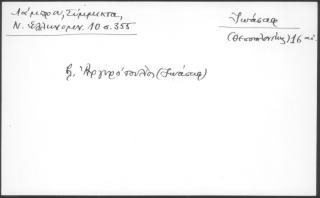 Λάμπρου, Σύμμικτα,
Ν. Ἑλληνομν. 10 σ. 355
Ἰωάσαφ
(Θεσσαλονίκης) 16 αἰ.
βλ. Ἀργυρόπουλος (Ἰωάσαφ)